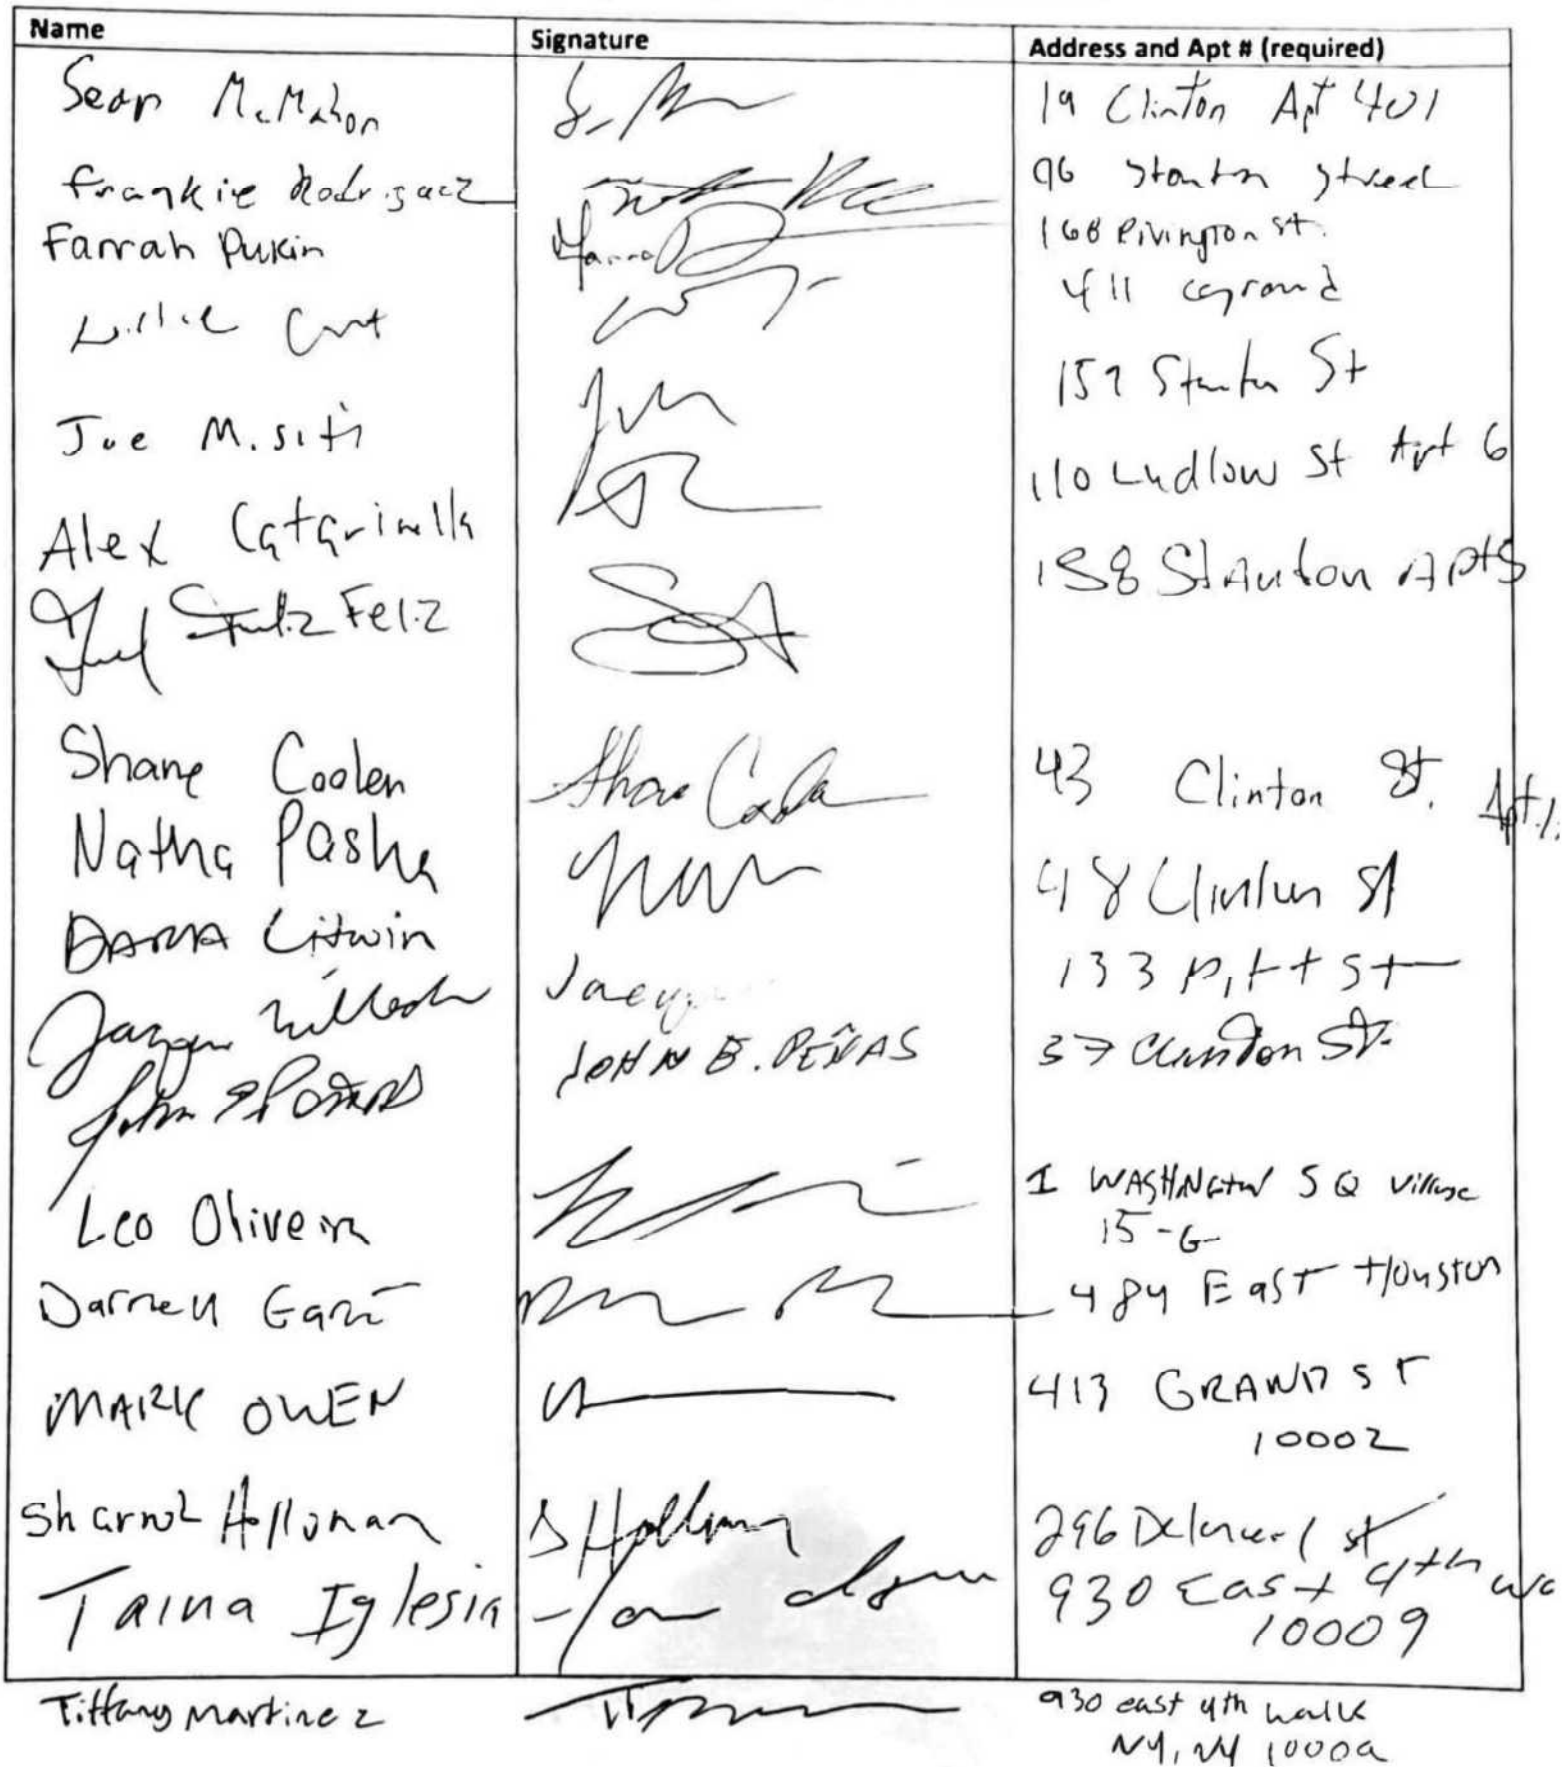 Name Signature Address and Apt # (required)
Sean McMahon 19 Clinton Apt 401
Frankie Rodriguez 96 Stanton Street
Farrah Pukin Farrah 168 Rivington St.
Willie 411 Grand
Joe Misiti 157 Stanton St
Alex Catarinella 110 Ludlow St Apt 6
Feliz 188 Stanton Apt 5
Shane Coolen Shane Coolen 43 Clinton St. Apt. 1.
Natha Pasha 48 Clinton St
DARIA Litwin 133 Pitt St
37 Clinton St.
John JOHN E. PEÑAS
Leo Oliveira 1 WASHINGTON SQ Village
15-G
Darnell 484 EAST Houston
MARK OWEN 413 GRAND ST
10002
Holloman S Holloman 296 Delancey st
Taina Iglesia 930 East 4th
10009
Tiffany Martinez 930 east 4th walk
NY, NY 10009